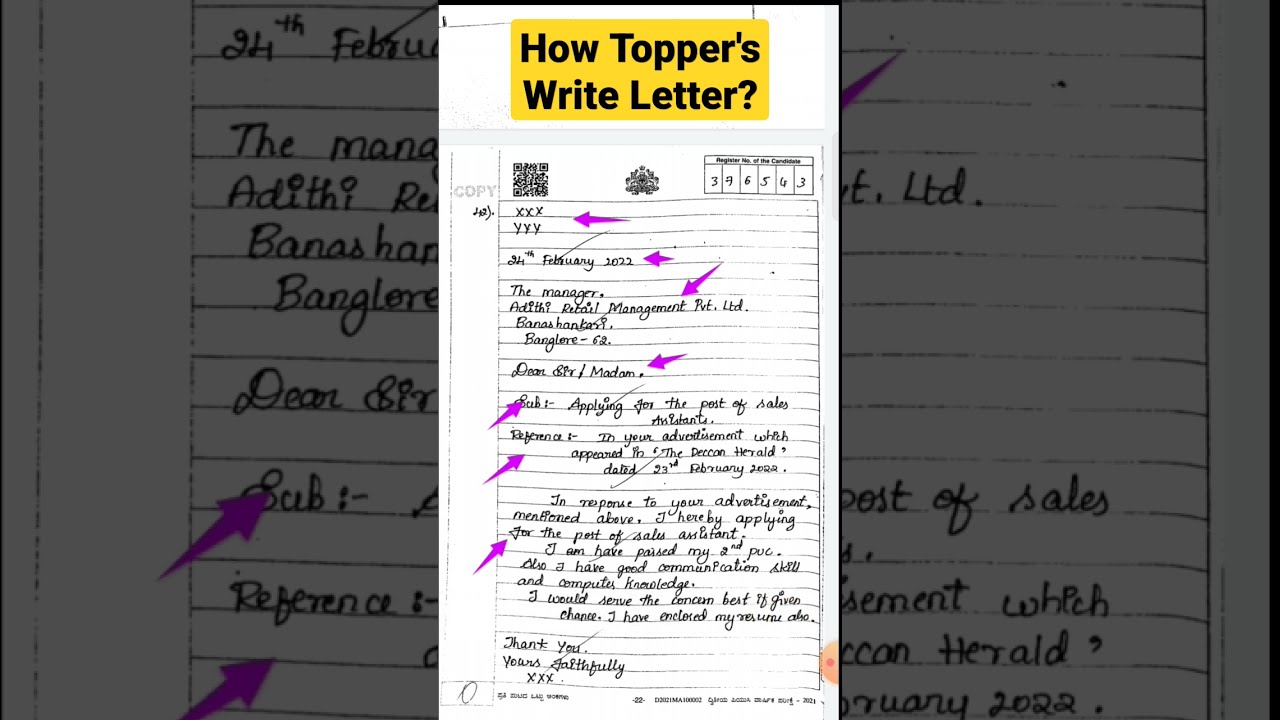 How Topper's
Write Letter?
COPY
Register No. of the Candidate
3 7 6 5 4 3
42).
XXX
YYY
24th February 2022
The manager.
Adithi Retail Management Pvt. Ltd.
Banashankari.
Banglore - 62.
Dear Sir / Madam.
Sub:- Applying for the post of sales
Assistants.
Reference:- In your advertisement which
appeared in 'The Deccan Herald'
dated 23rd February 2022.
In response to your advertisement,
mentioned above. I hereby applying
for the post of sales assistant.
I am have passed my 2nd PUC.
Also I have good communication skill
and computer knowledge.
I would serve the concern best if given
chance. I have enclosed my resume also.
Thank You.
Yours Faithfully
XXX.
ಪ್ರತಿ ಪುಟದ ಒಟ್ಟು ಅಂಕಗಳು
-22-
D2021MA100002 ದ್ವಿತೀಯ ಪಿಯುಸಿ ವಾರ್ಷಿಕ ಪರೀಕ್ಷೆ - 2021